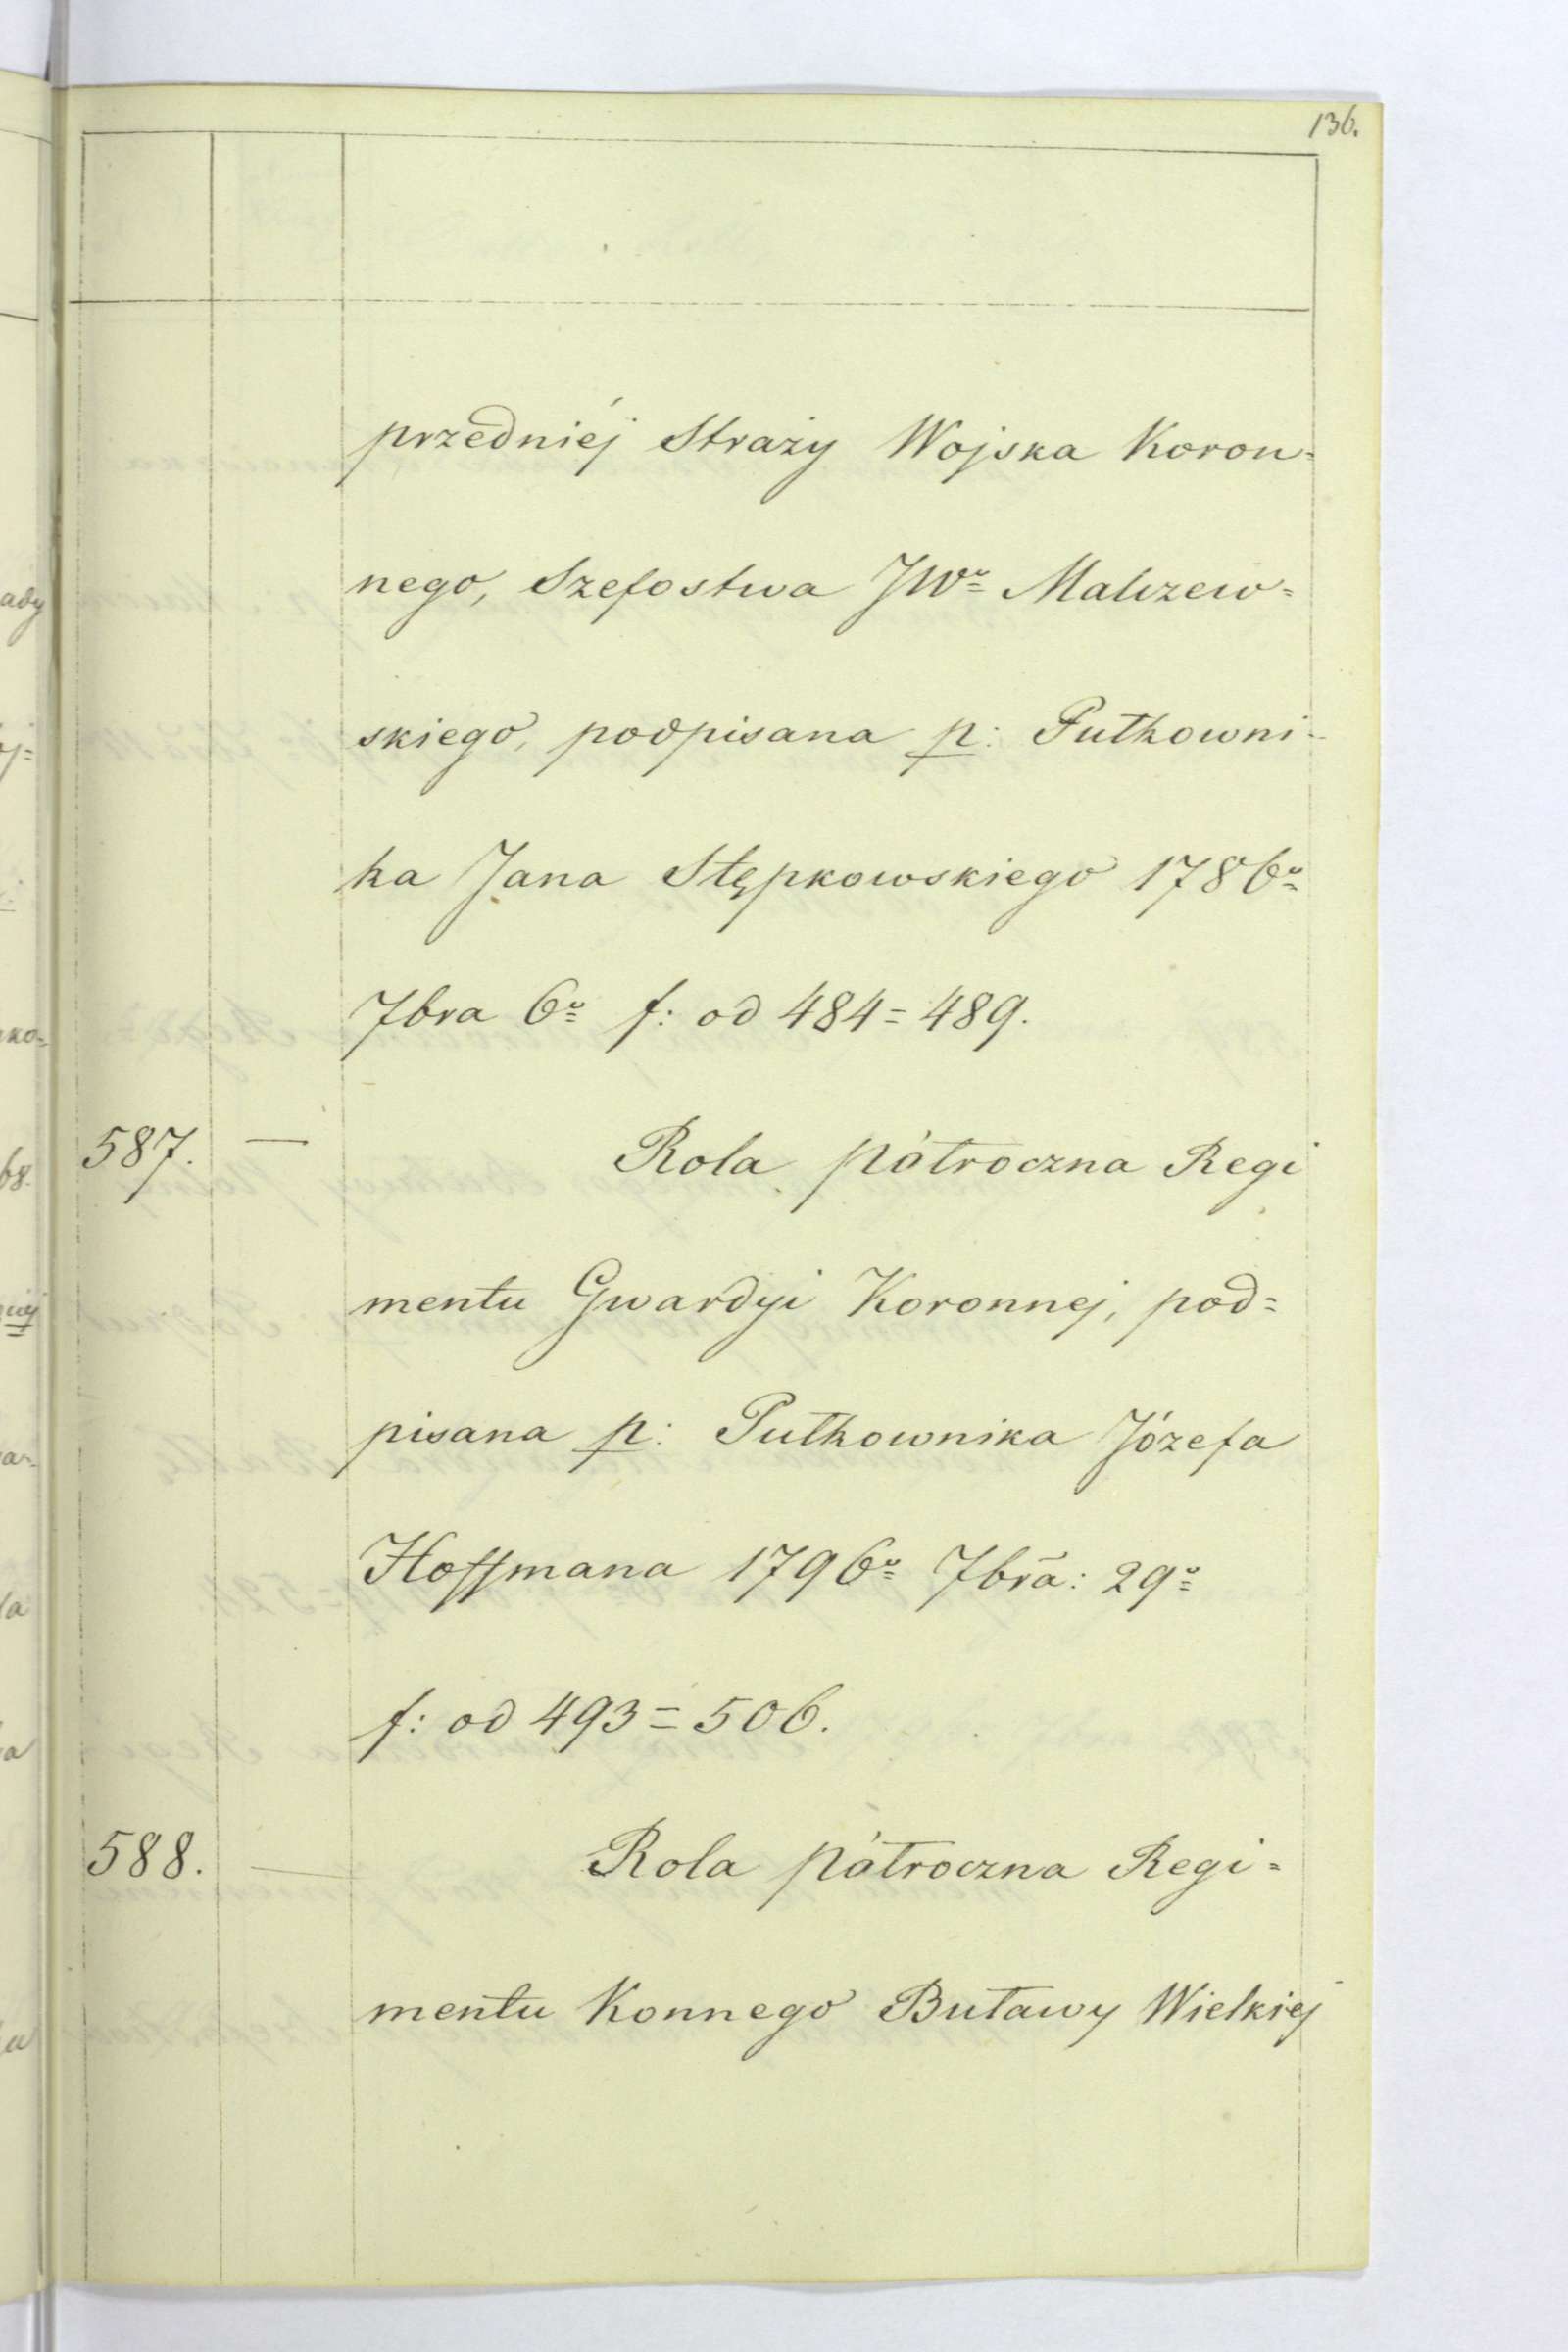 136.
przedniéj Straży Wojska Koron=
nego, Szefostwa JWº Malczew=
skiego, podpisana p: Pułkowni=
ka Jana Stępkowskiego 1786º
7bra 6º f: od 484=489.
587. — Rola półroczna Regi
mentu Gwardyi Koronnej, pod=
pisana p: Pułkownika Józefa
Hoffmana 1796º 7bra: 29º
f: od 493=506.
588. — Rola półroczna Regi=
mentu Konnego Buławy Wielkiej